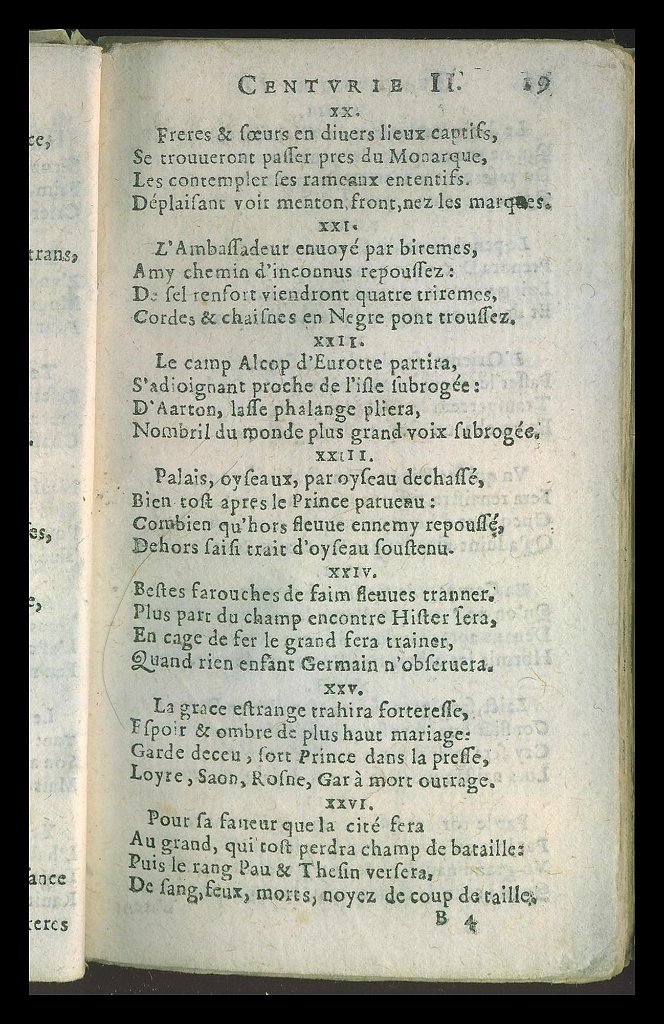 ce,
trans,
.
es,
e,
ance
reres
CENTVRIE II. 19
XX.
Freres & sœurs en diuers lieux captifs,
Se trouueront passer pres du Monarque,
Les contempler ses rameaux ententifs.
Déplaisant voir menton, front, nez les marques.
XXI.
L'Ambassadeur enuoyé par biremes,
Amy chemin d'inconnus repoussez:
De sel renfort viendront quatre triremes,
Cordes & chaisnes en Negre pont troussez.
XXII.
Le camp Alcop d'Eurotte partira,
S'adioignant proche de l'isle subrogée:
D'Aarton, lasse phalange pliera,
Nombril du monde plus grand voix subrogée.
XXIII.
Palais, oyseaux, par oyseau dechassé,
Bien tost apres le Prince paruenu:
Combien qu'hors fleuue ennemy repoussé,
Dehors saisi trait d'oyseau soustenu.
XXIV.
Bestes farouches de faim fleuues tranner.
Plus part du champ encontre Hister sera,
En cage de fer le grand fera trainer,
Quand rien enfant Germain n'obseruera.
XXV.
La grace estrange trahira forteresse,
Espoir & ombre de plus haut mariage:
Garde deceu, fort Prince dans la presse,
Loyre, Saon, Rosne, Gar à mort outrage.
XXVI.
Pour sa faueur que la cité fera
Au grand, qui tost perdra champ de bataille:
Puis le rang Pau & Thesin versera,
De sang, feux, morts, noyez de coup de taille.
B 4